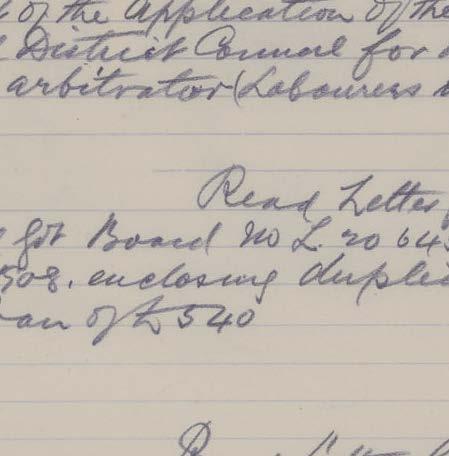 of the Application of the
District Council for
arbitrator (Labourers
Read Letter
Board No L. 20 645
508. enclosing duplic
oan of £540